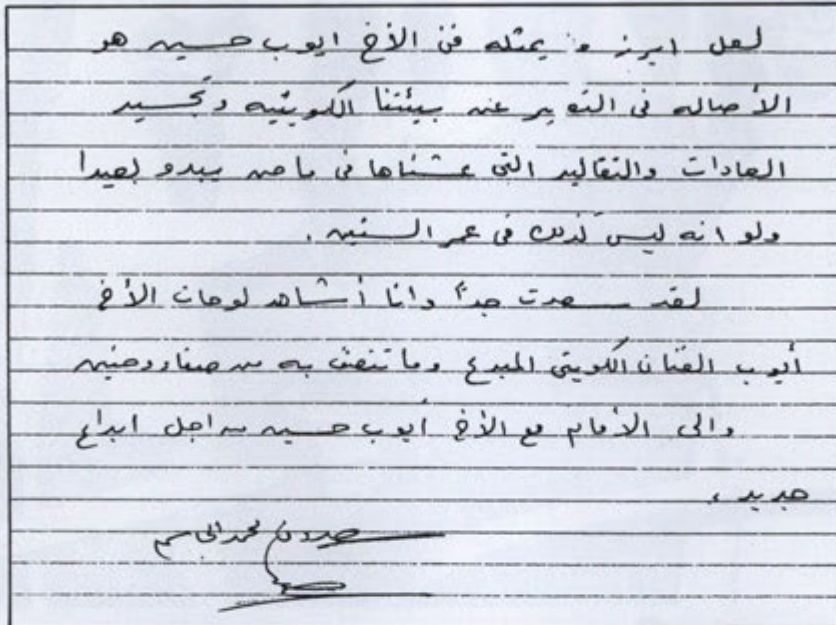 لعل ابرز ما يمثله فن الأخ ايوب حسين هو
الأصاله فى التعبير عن بيئتنا الكويتيه وتجسيد
العادات والتقاليد التى عشناها فى ماضى يبدو بعيدا
ولو انه ليس كذلك فى عمر السنين .
لقد سعدت جداً وانا أشاهد لوحات الأخ
أيوب الفنان الكويتى المبدع وما تتصف به من صفاء وحنين
والى الأمام مع الأخ أيوب حسين من اجل ابداع
جديد ،
سعدون محمد الجاسم